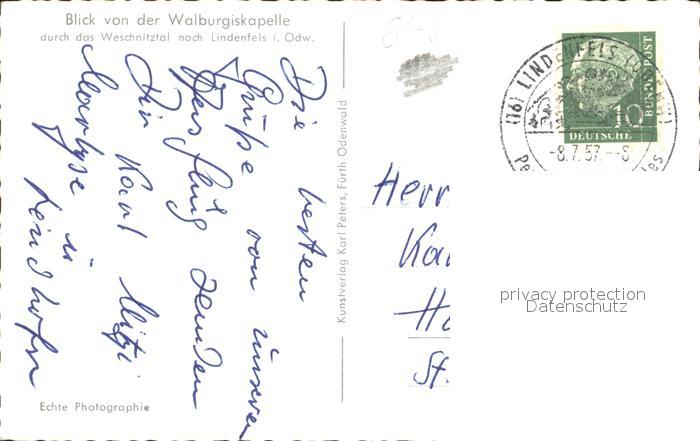 Blick von der Walburgiskapelle
durch das Weschnitztal nach Lindenfels i. Odw.
Die besten
Grüße von unserem
Ausflug senden
Dir Karl Mitzi
Marlyse u
Echte Photographie
Kunstverlag Karl Peters, Fürth Odenwald
(16) LINDENFELS
-8.7.57.--8
10
DEUTSCHE
BUNDESPOST
Herr
Ka
H
St.
privacy protection
Datenschutz